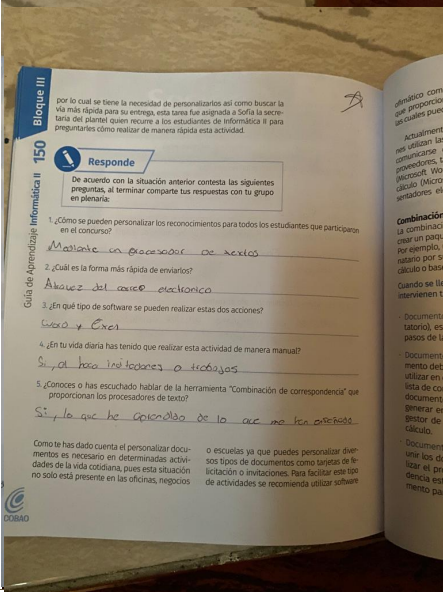 Bloque III
150
Guía de Aprendizaje Informática II
por lo cual se tiene la necesidad de personalizarlos así como buscar la
vía más rápida para su entrega, esta tarea fue asignada a Sofía la secre-
taria del plantel quien recurre a los estudiantes de Informática II para
preguntarles cómo realizar de manera rápida esta actividad.
Responde
De acuerdo con la situación anterior contesta las siguientes
preguntas, al terminar comparte tus respuestas con tu grupo
en plenaria:
1. ¿Cómo se pueden personalizar los reconocimientos para todos los estudiantes que participaron
en el concurso?
Mediante un procesador de textos
2. ¿Cuál es la forma más rápida de enviarlos?
Atravez del correo electronico
3. ¿En qué tipo de software se pueden realizar estas dos acciones?
word y Exel
4. ¿En tu vida diaria has tenido que realizar esta actividad de manera manual?
Si, al hacer invitaciones o trabajos
5. ¿Conoces o has escuchado hablar de la herramienta "Combinación de correspondencia" que
proporcionan los procesadores de texto?
Si, lo que he aprendido de lo que me han enseñado
Como te has dado cuenta el personalizar docu-
mentos es necesario en determinadas activi-
dades de la vida cotidiana, pues esta situación
no solo está presente en las oficinas, negocios
o escuelas ya que puedes personalizar diver-
sos tipos de documentos como tarjetas de fe-
licitación o invitaciones. Para facilitar este tipo
de actividades se recomienda utilizar software
COBAO
ofimático com
que proporcio
las cuales pue
Actualment
nes utilizan la
comunicarse
proveedores,
(Microsoft Wo
cálculo (Micro
sentadores el
Combinación
La combinaci
crear un paqu
Por ejemplo,
natario por s
cálculo o bas
Cuando se ll
intervienen t
· Document
tatorio), es
pasos de l
· Document
mento det
utilizar en
lista de co
document
generar e
gestor de
cálculo.
· Document
unir los d
lizar el pr
dencia es
mento pa